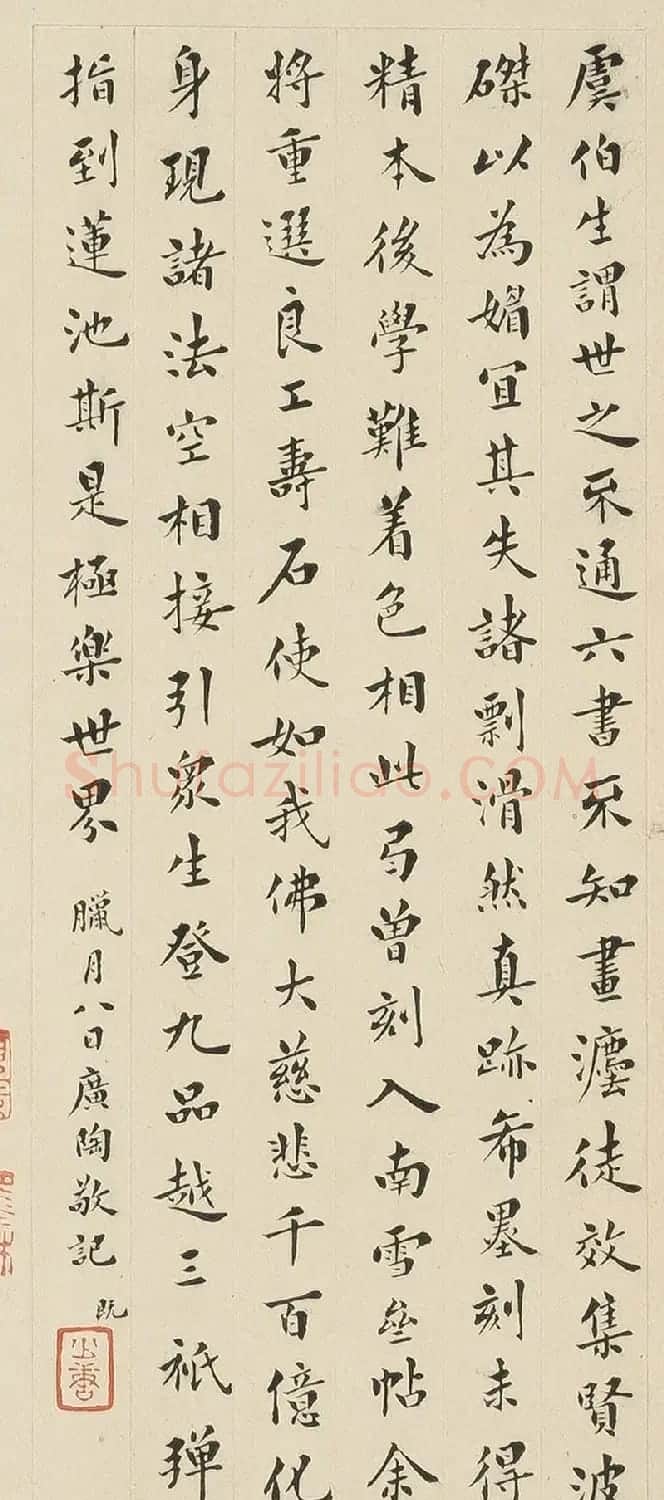 虞伯生謂世之不通六書不知畫灋徒效集賢波
磔以為媚宜其失諸剽滑然真跡希墨刻未得
精本後學難着色相此曷曾刻入南雪壘帖余
將重選良工壽石使如我佛大慈悲千百億化
身現諸法空相接引衆生登九品越三祇彈
指到蓮池斯是極樂世界
臘月八日廣陶敬記
Shufaziliao.COM